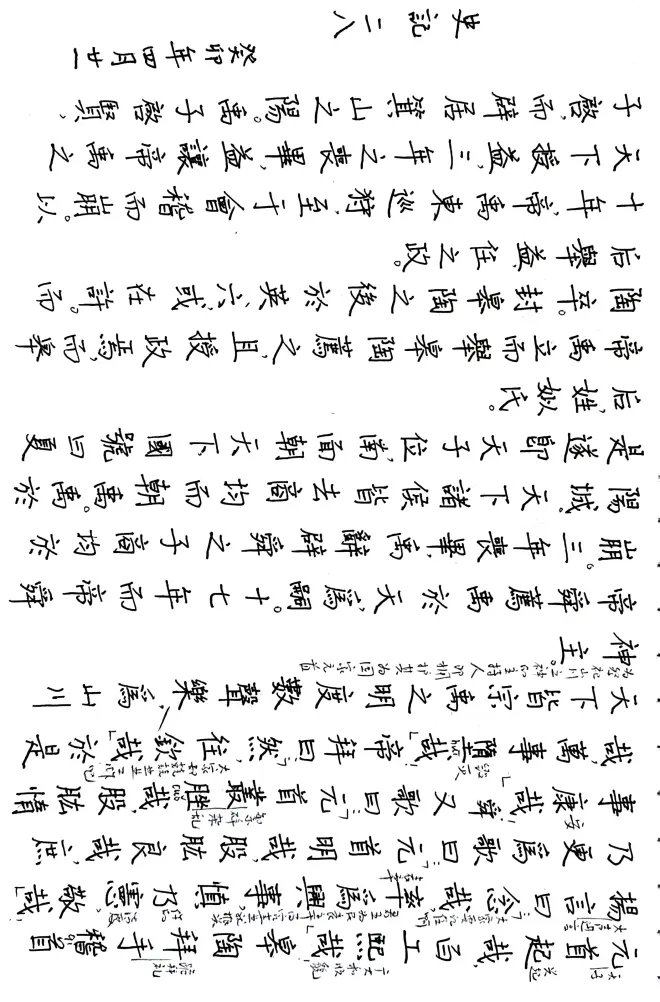 元首起哉,百工熙哉」皋陶拜手稽首
揚言曰「念哉,率為興事,慎乃憲,敬哉」
乃更為歌曰「元首明哉,股肱良哉,庶
事康哉」舜又歌曰「元首叢脞哉,股肱惰
哉,萬事墮哉」帝拜曰「然,往欽哉」於是
天下皆宗禹之明度數聲樂,為山川
神主。
帝舜薦禹於天,為嗣。十七年而帝舜
崩。三年喪畢,禹辭辟舜之子商均於
陽城。天下諸侯皆去商均而朝禹。禹於
是遂即天子位,南面朝天下,國號曰夏
后,姓姒氏。
帝禹立而舉皋陶薦之,且授政焉,而皋
陶卒。封皋陶之後於英、六,或在許。而
后舉益,任之政。
十年,帝禹東巡狩,至于會稽而崩。以
天下授益。三年之喪畢,益讓帝禹之
子啟,而辟居箕山之陽。禹子啟賢,
癸卯年四月廿一
史記二八